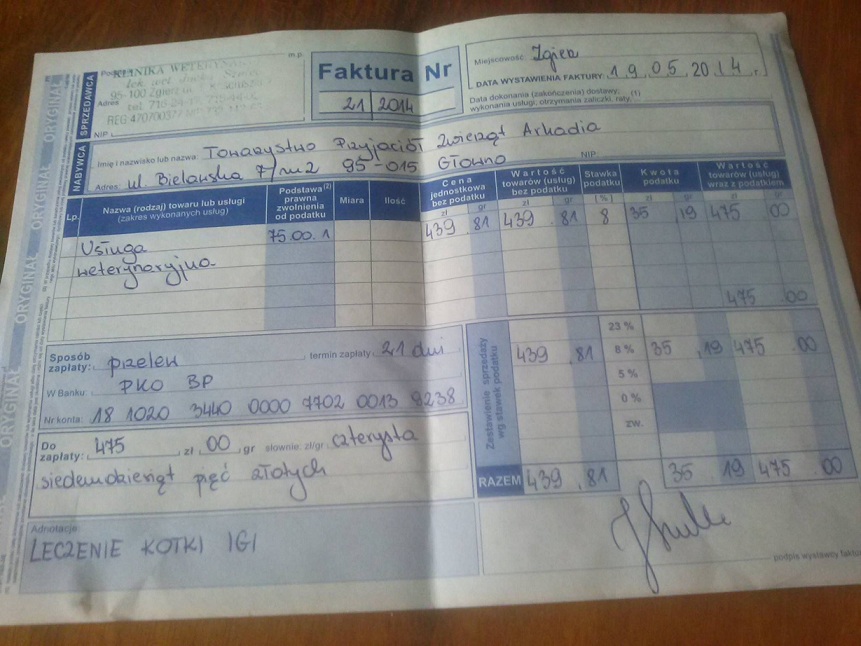 ORYGINAŁ ORYGINAŁ ORYGINAŁ ORYGINAŁ ORYGINAŁ
SPRZEDAWCA
KLINIKA WETERYN
lek. wet.
95-100 Zgierz ul.
Adres
tel.
REG 47070037
NIP
m.p.
Faktura Nr
21 2014
Miejscowość: Zgierz
DATA WYSTAWIENIA FAKTURY: 19.05.2014.
Data dokonania (zakończenia) dostawy; (1)
wykonania usługi; otrzymania zaliczki, raty:
NABYWCA
Imię i nazwisko lub nazwa: Towarzystwo Przyjaciół Zwierząt Arkadia
Adres: ul. Bielawska 7/m2 95-015 Głowno NIP
Lp. Nazwa (rodzaj) towaru lub usługi (zakres wykonanych usług) Podstawa (2) prawna zwolnienia od podatku Miara Ilość Cena jednostkowa bez podatku Wartość towarów (usług) bez podatku Stawka podatku Kwota podatku Wartość towarów (usług) wraz z podatkiem
zł gr zł gr (%) zł gr zł gr
Usługa 75.00.1 439 .81 439 .81 8 35 .19 475 00
weterynaryjna
475 .00
Sposób zapłaty: przelew termin zapłaty 21 dni
W Banku: PKO BP
Nr konta: 18 1020 3440 0000 7702 0013 9238
Do zapłaty: 475 zł 00 gr słownie: zł/gr czterysta
siedemdziesiąt pięć złotych
Zestawienie sprzedaży wg stawek podatku
23 %
439 .81 8 % 35 .19 475 00
5 %
0 %
zw.
RAZEM 439 .81 35 .19 475 00
Adnotacje:
LECZENIE KOTKI IGI
podpis wystawcy faktu